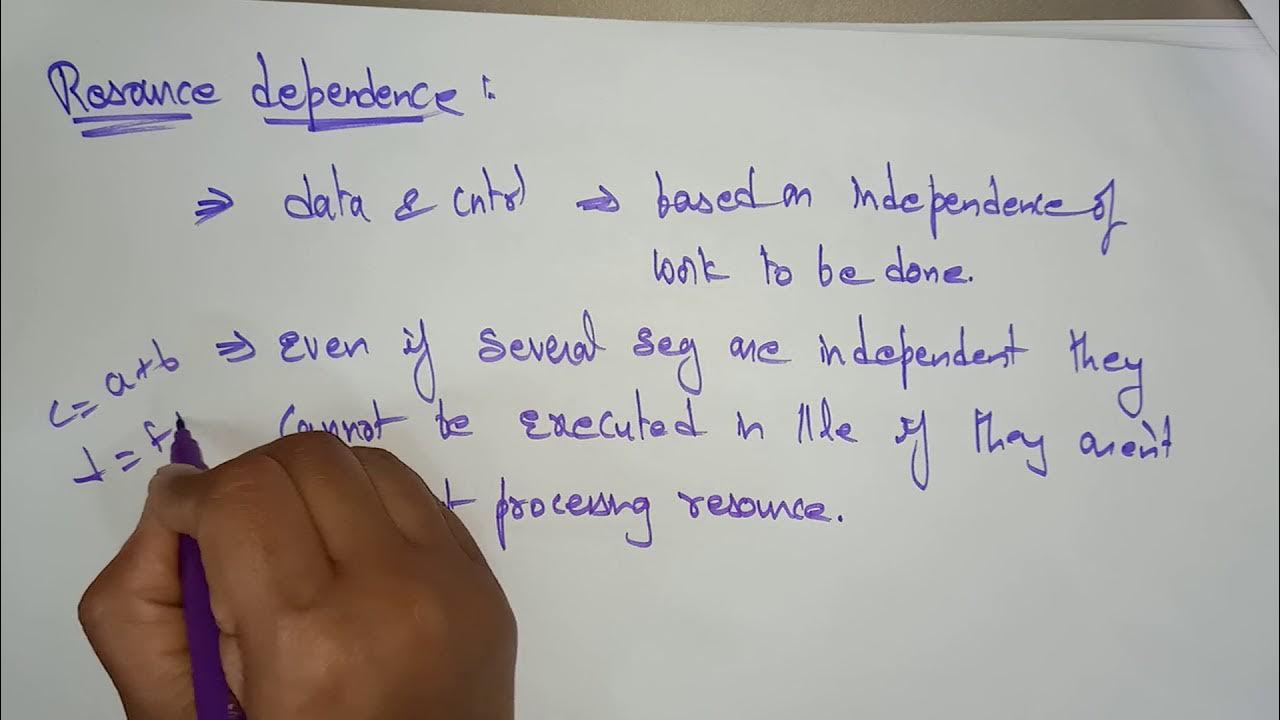 Resource dependence :
⇒ data & cntrl → based on independence of
work to be done.
c = a+b
⇒ Even if several seg are independent they
cannot be executed in lle if they aren't
processing resource.